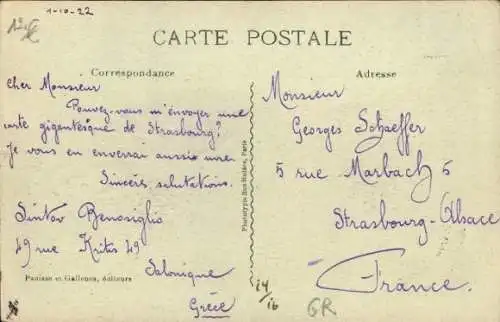 1-10-22
12€
CARTE POSTALE
Correspondance
Cher Monsieur
Pouvez-vous m'envoyer une
carte gigentesque de Strasbourg?
Je vous en enverrai aussi une.
Sincères salutations.
Sintov Benosiglio
49 rue Krites 49
Salonique
Grèce
Panisse et Gallenca, éditeurs
Adresse
Monsieur
Georges Schaeffer
5 rue Marbach 5
Strasbourg-Alsace
France.
14/16
GR